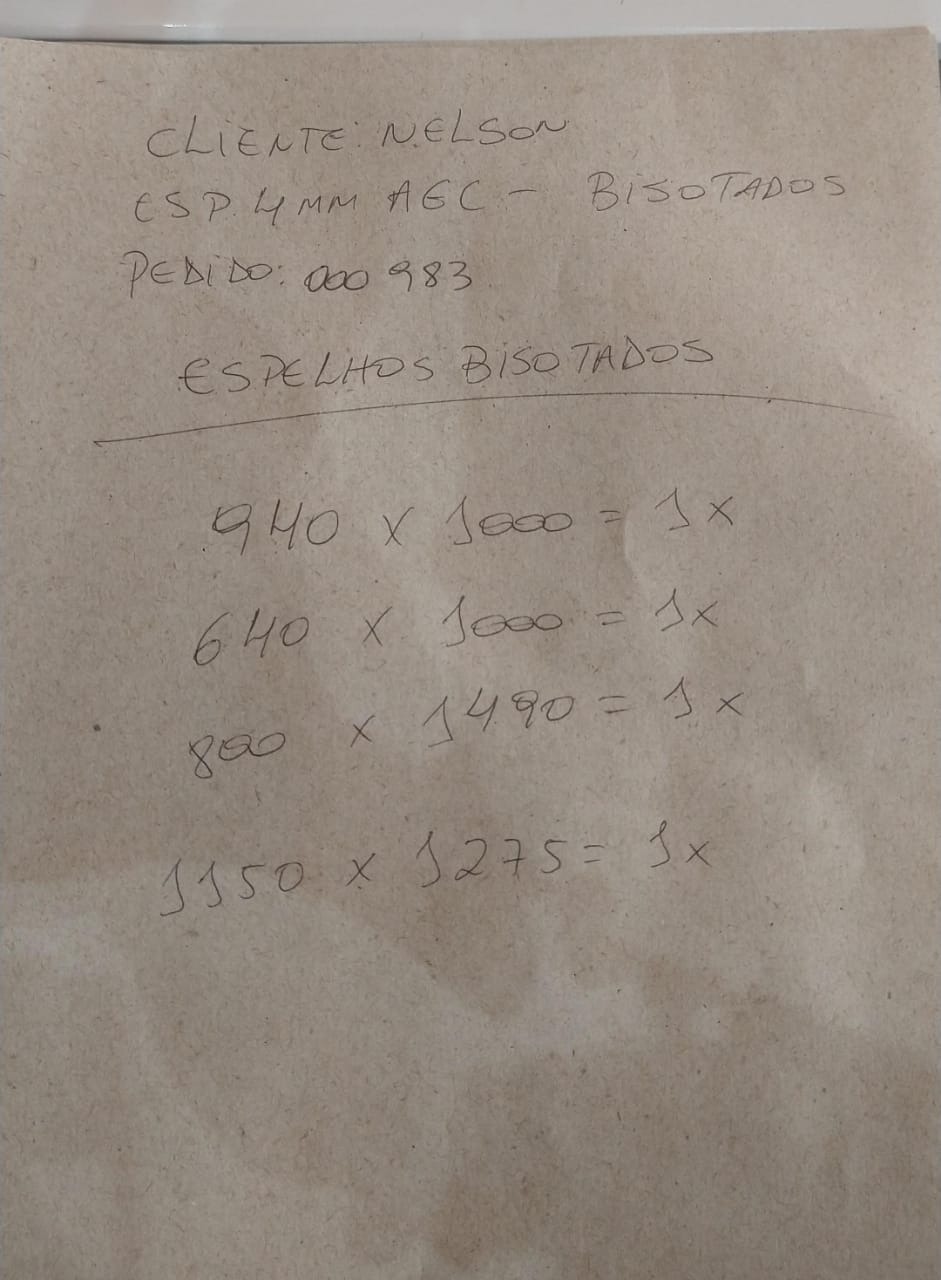 CLIENTE: NELSON
ESP. 4MM AGC - BISOTADOS
PEDIDO: 000983
ESPELHOS BISOTADOS
940 x 1000 = 1x
640 x 1000 = 1x
800 x 1490 = 1x
1150 x 1275 = 1x